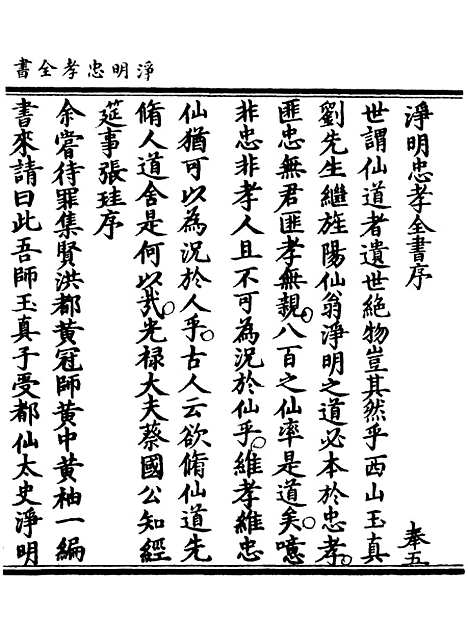 淨明忠孝全書
淨明忠孝全書序 奉五
世謂仙道者遺世絶物豈其然乎西山玉真
劉先生繼旌陽仙翁淨明之道必本於忠孝。
匪忠無君匪孝無親。八百之仙率是道矣。噫
非忠非孝人且不可為況於仙乎。維孝維忠
仙猶可以為況於人乎。古人云欲脩仙道先
脩人道舍是何以哉。光禄大夫蔡國公知經
筵事張珪序
余嘗待罪集賢洪都黃冠師黃中黃袖一編
書來請曰此吾師玉真子受都仙太史淨明